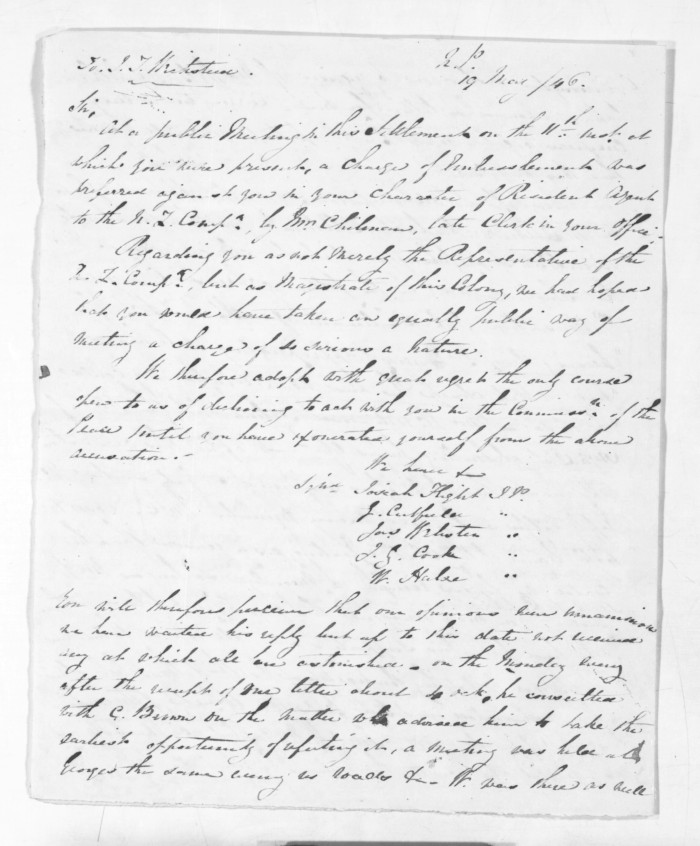 N.P.
To J. T. Wicksteed. 19 May /46.
Sir,
At a public Meeting in this Settlement on the 11th inst. at
which you were present, a charge of Embezzlement was
preferred against you in your character of Resident Agent
to the N. Z. Compy, by Mr Chilman, late Clerk in your Office.
Regarding you as not merely the Representative of the
N. Z. Compy, but as Magistrate of this Colony, we had hoped
that you would have taken an equally public way of
meeting a charge of so serious a nature.
We therefore adopt with great regret the only course
open to us of declining to act with you in the Commissn of the
Peace until you have exonerated yourself from the above
accusation.-
We have &
Signed Josiah Flight J.P.
J. Cutfield "
Jas Webster "
J. G. Cooke "
W. Halse "
You will therefore perceive that our opinions were unanimous
we have waited his reply but up to this date not received
any at which all are astonished - on the Monday evening
after the receipt of letter about 4 he consulted
with C. Brown on the matter who advised him to take the
earliest opportunity of refuting it, a meeting was held at
Georges the same evening as roads &c. W. was there as well